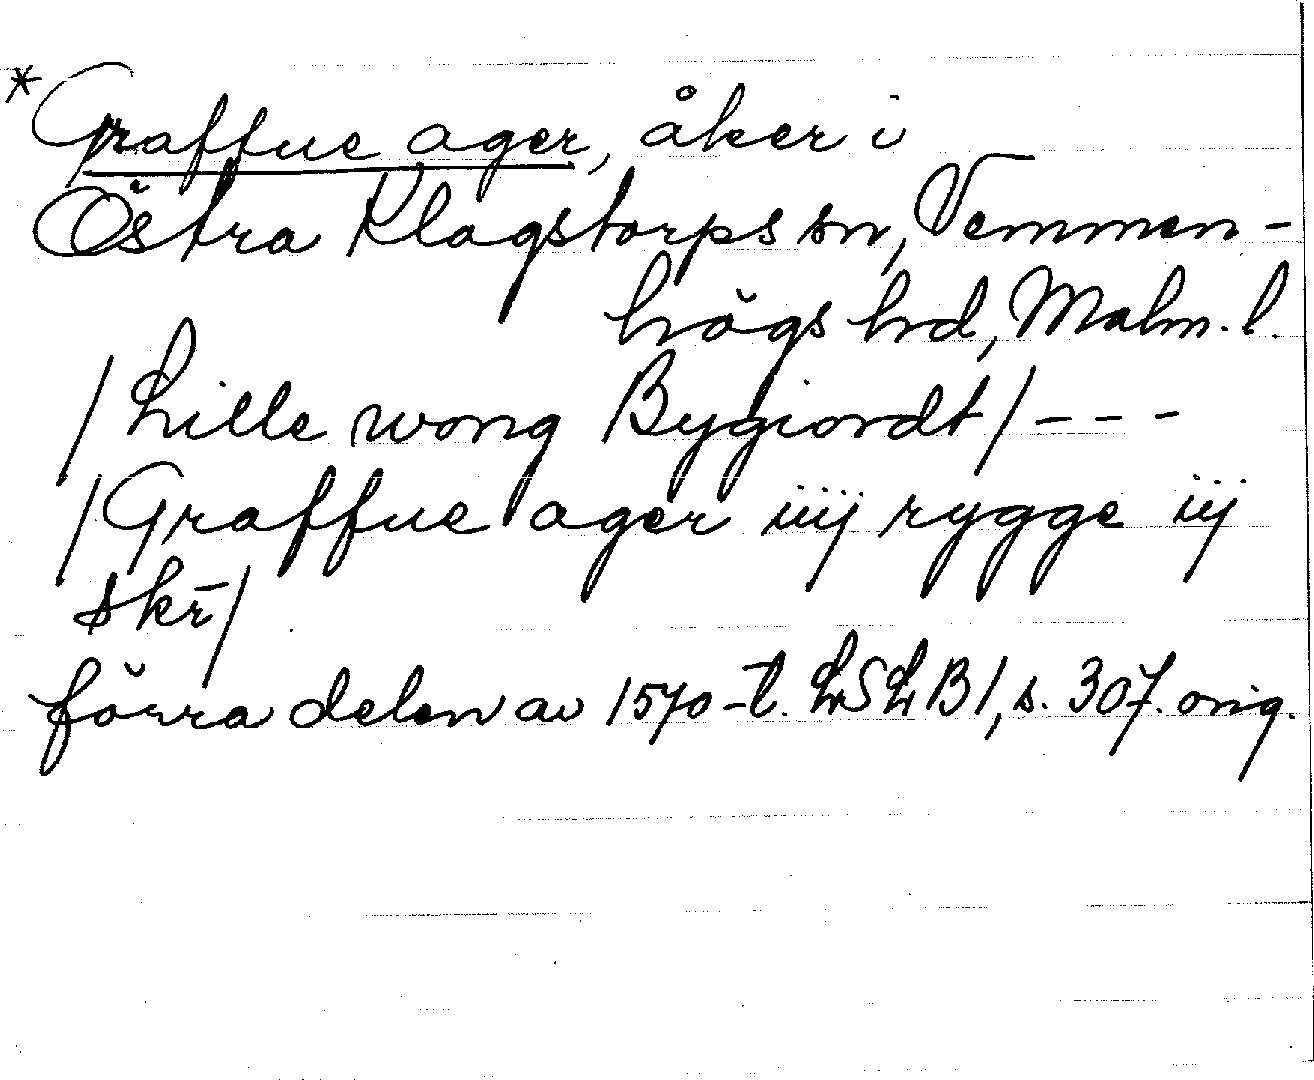 *Graffue ager, åker i
Östra Klagstorps sn, Vemmen-
högs hd, Malm. l.
/Lille wong Bygiordt/ - - -
/Graffue ager iiij rygge iij
skr̄/
förra delen av 1570-t. LSLB1, s. 307. orig.